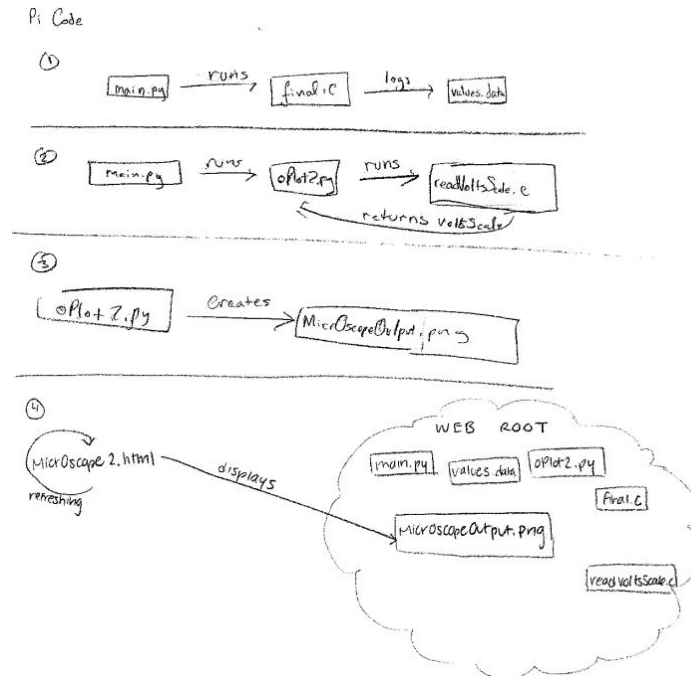 Pi Code
①
main.py runs final.c logs values.data
②
main.py runs oPlot2.py runs readVoltsScale.c
returns voltsScale
③
oPlot2.py creates MicrOscopeOutput.png
④
WEB ROOT
MicrOscope2.html
refreshing
displays
main.py values.data oPlot2.py
final.c
MicrOscopeOutput.png
readVoltsScale.c